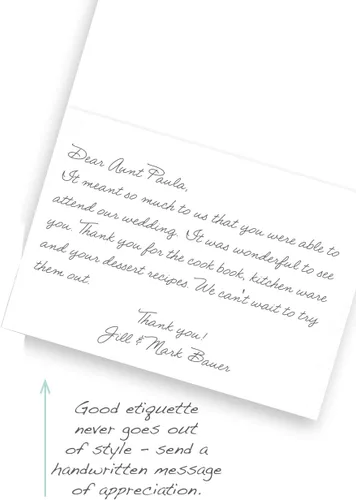 Dear Aunt Paula,
It meant so much to us that you were able to
attend our wedding. It was wonderful to see
you. Thank you for the cook book, kitchen ware
and your dessert recipes. We can't wait to try
them out.
Thank you!
Jill & Mark Bauer
Good etiquette
never goes out
of style - send a
handwritten message
of appreciation.